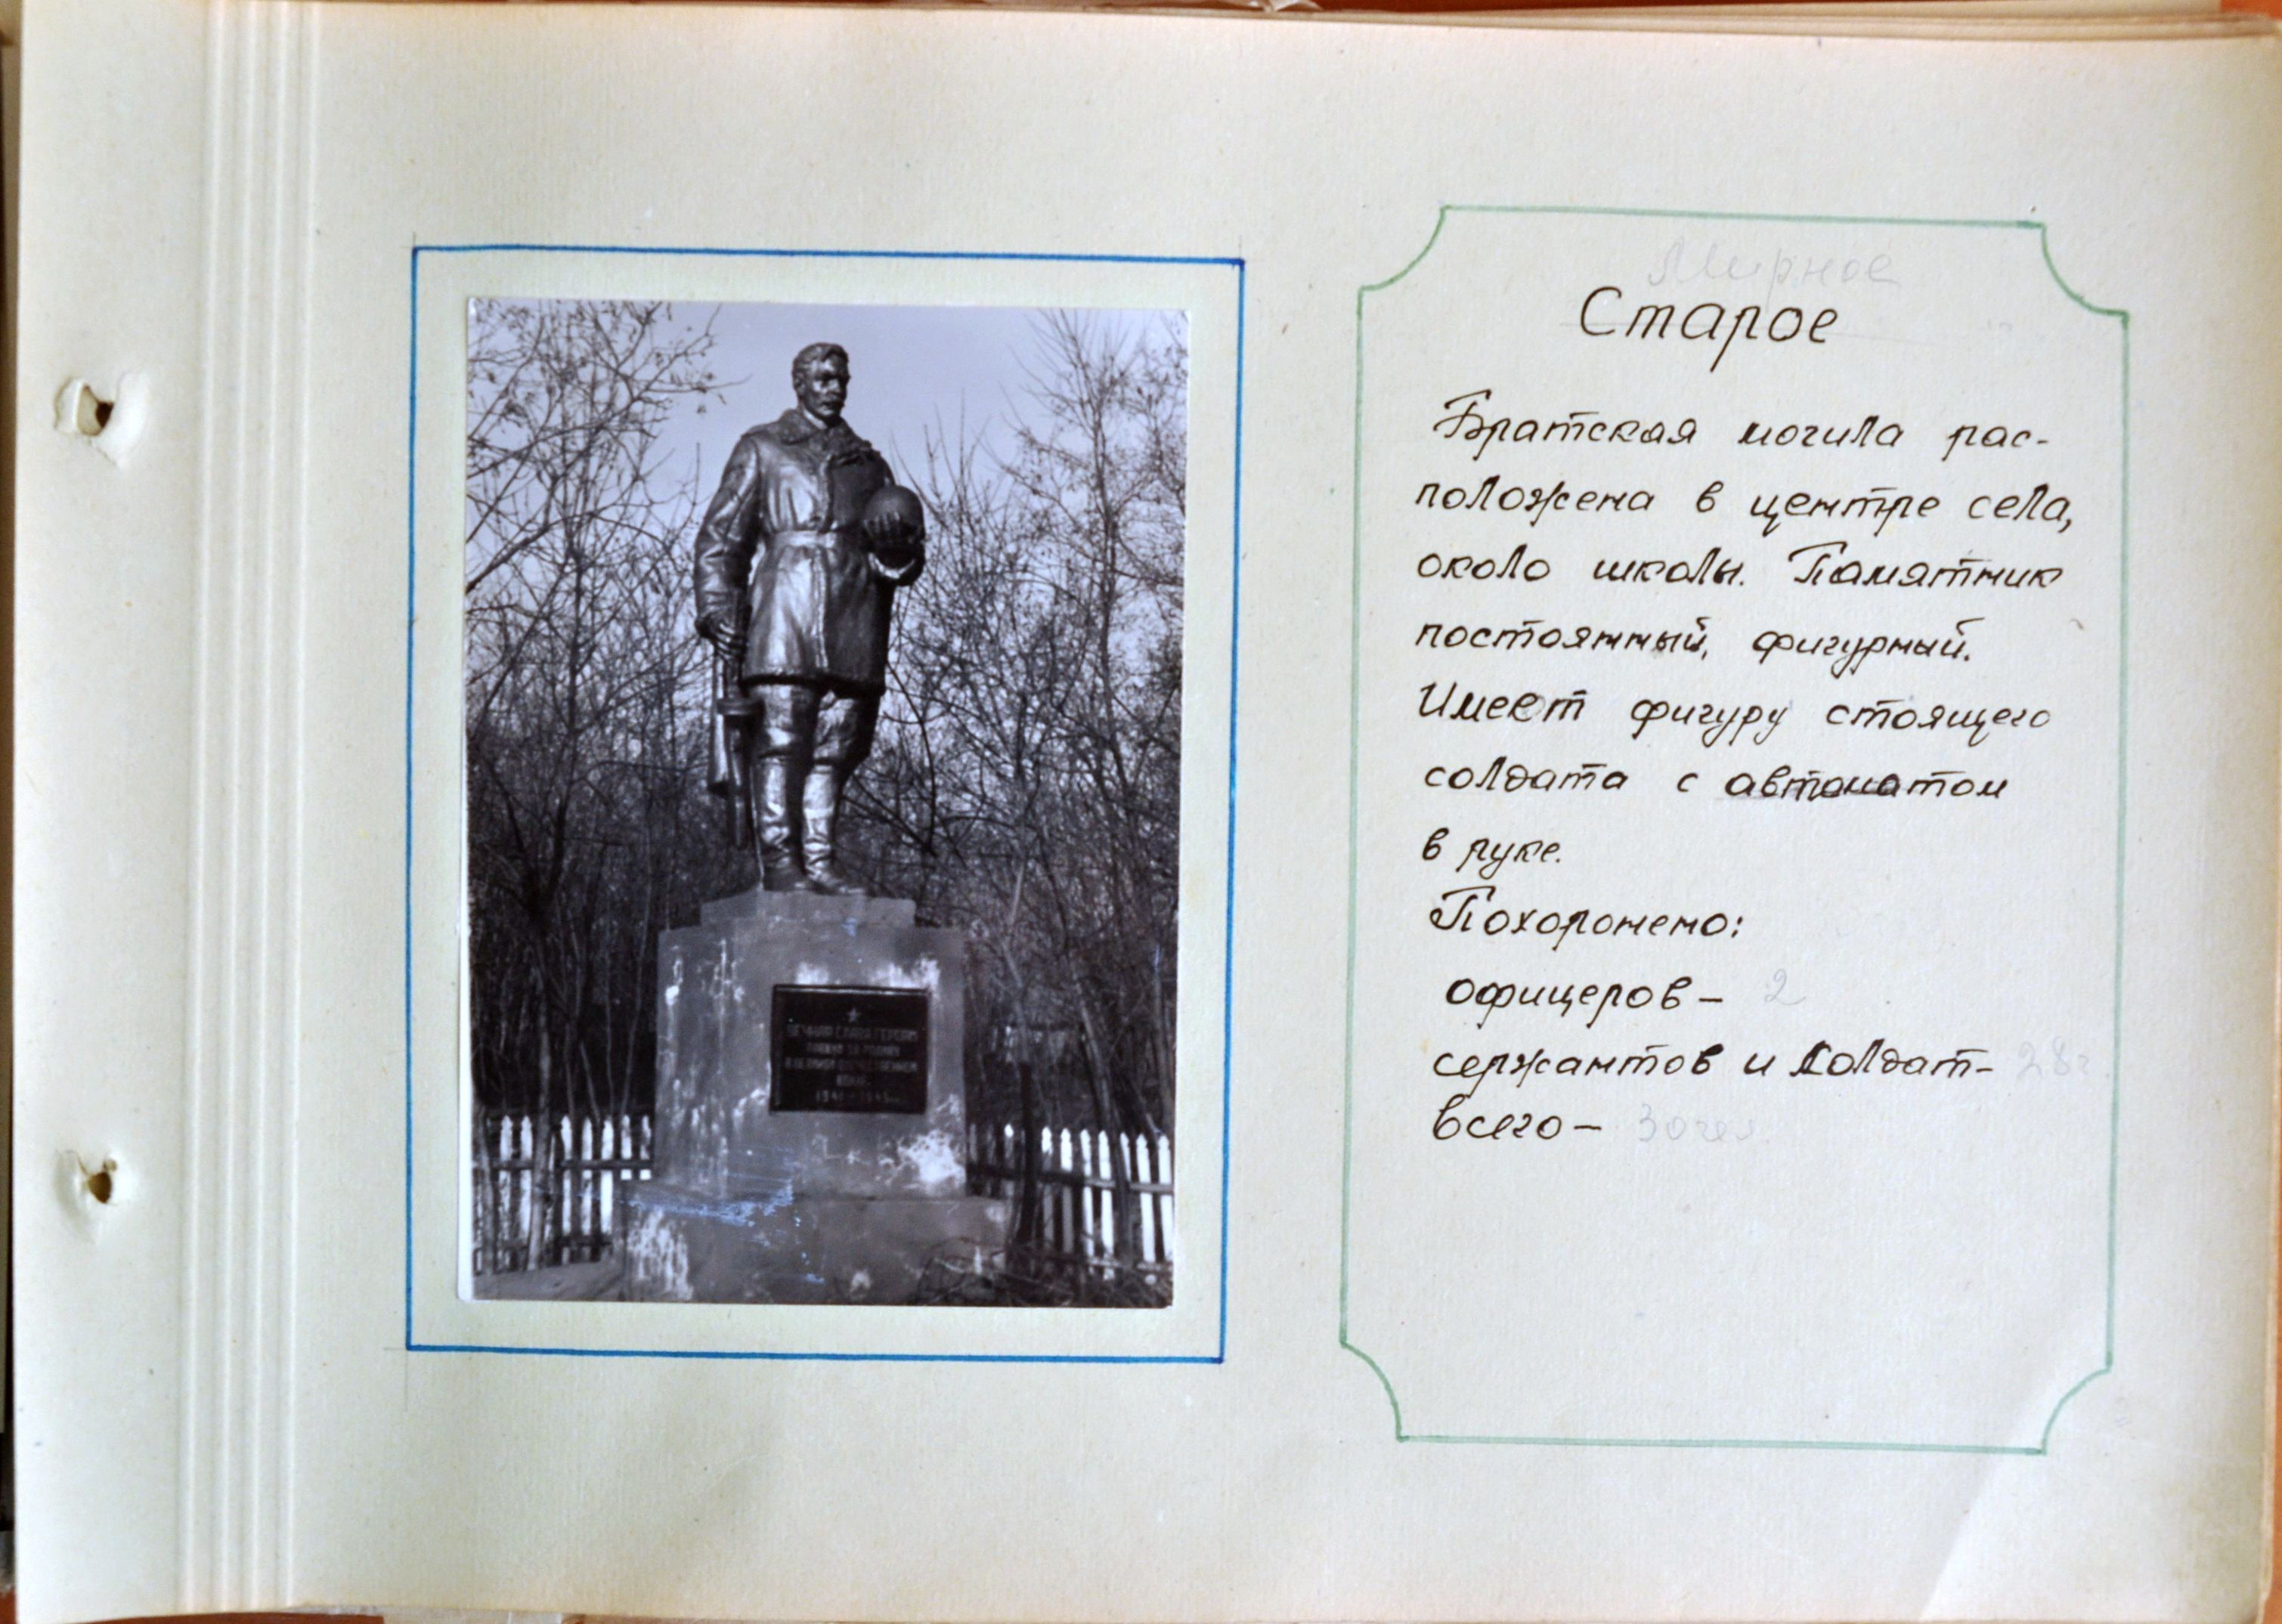 ★
ВЕЧНАЯ СЛАВА ГЕРОЯМ
В ВЕЛИКОЙ ОТЕЧЕСТВЕННОЙ
1941-1945
Мирное
Старое
Братская могила рас-
положена в центре села,
около школы. Памятник
постоянный, фигурный.
Имеет фигуру стоящего
солдата с автоматом
в руке.
Похоронено:
офицеров – 2
сержантов и солдат – 28
всего – 30 чел.